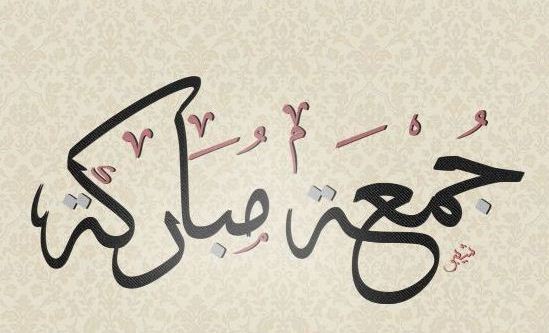 جُمعة مُباركة